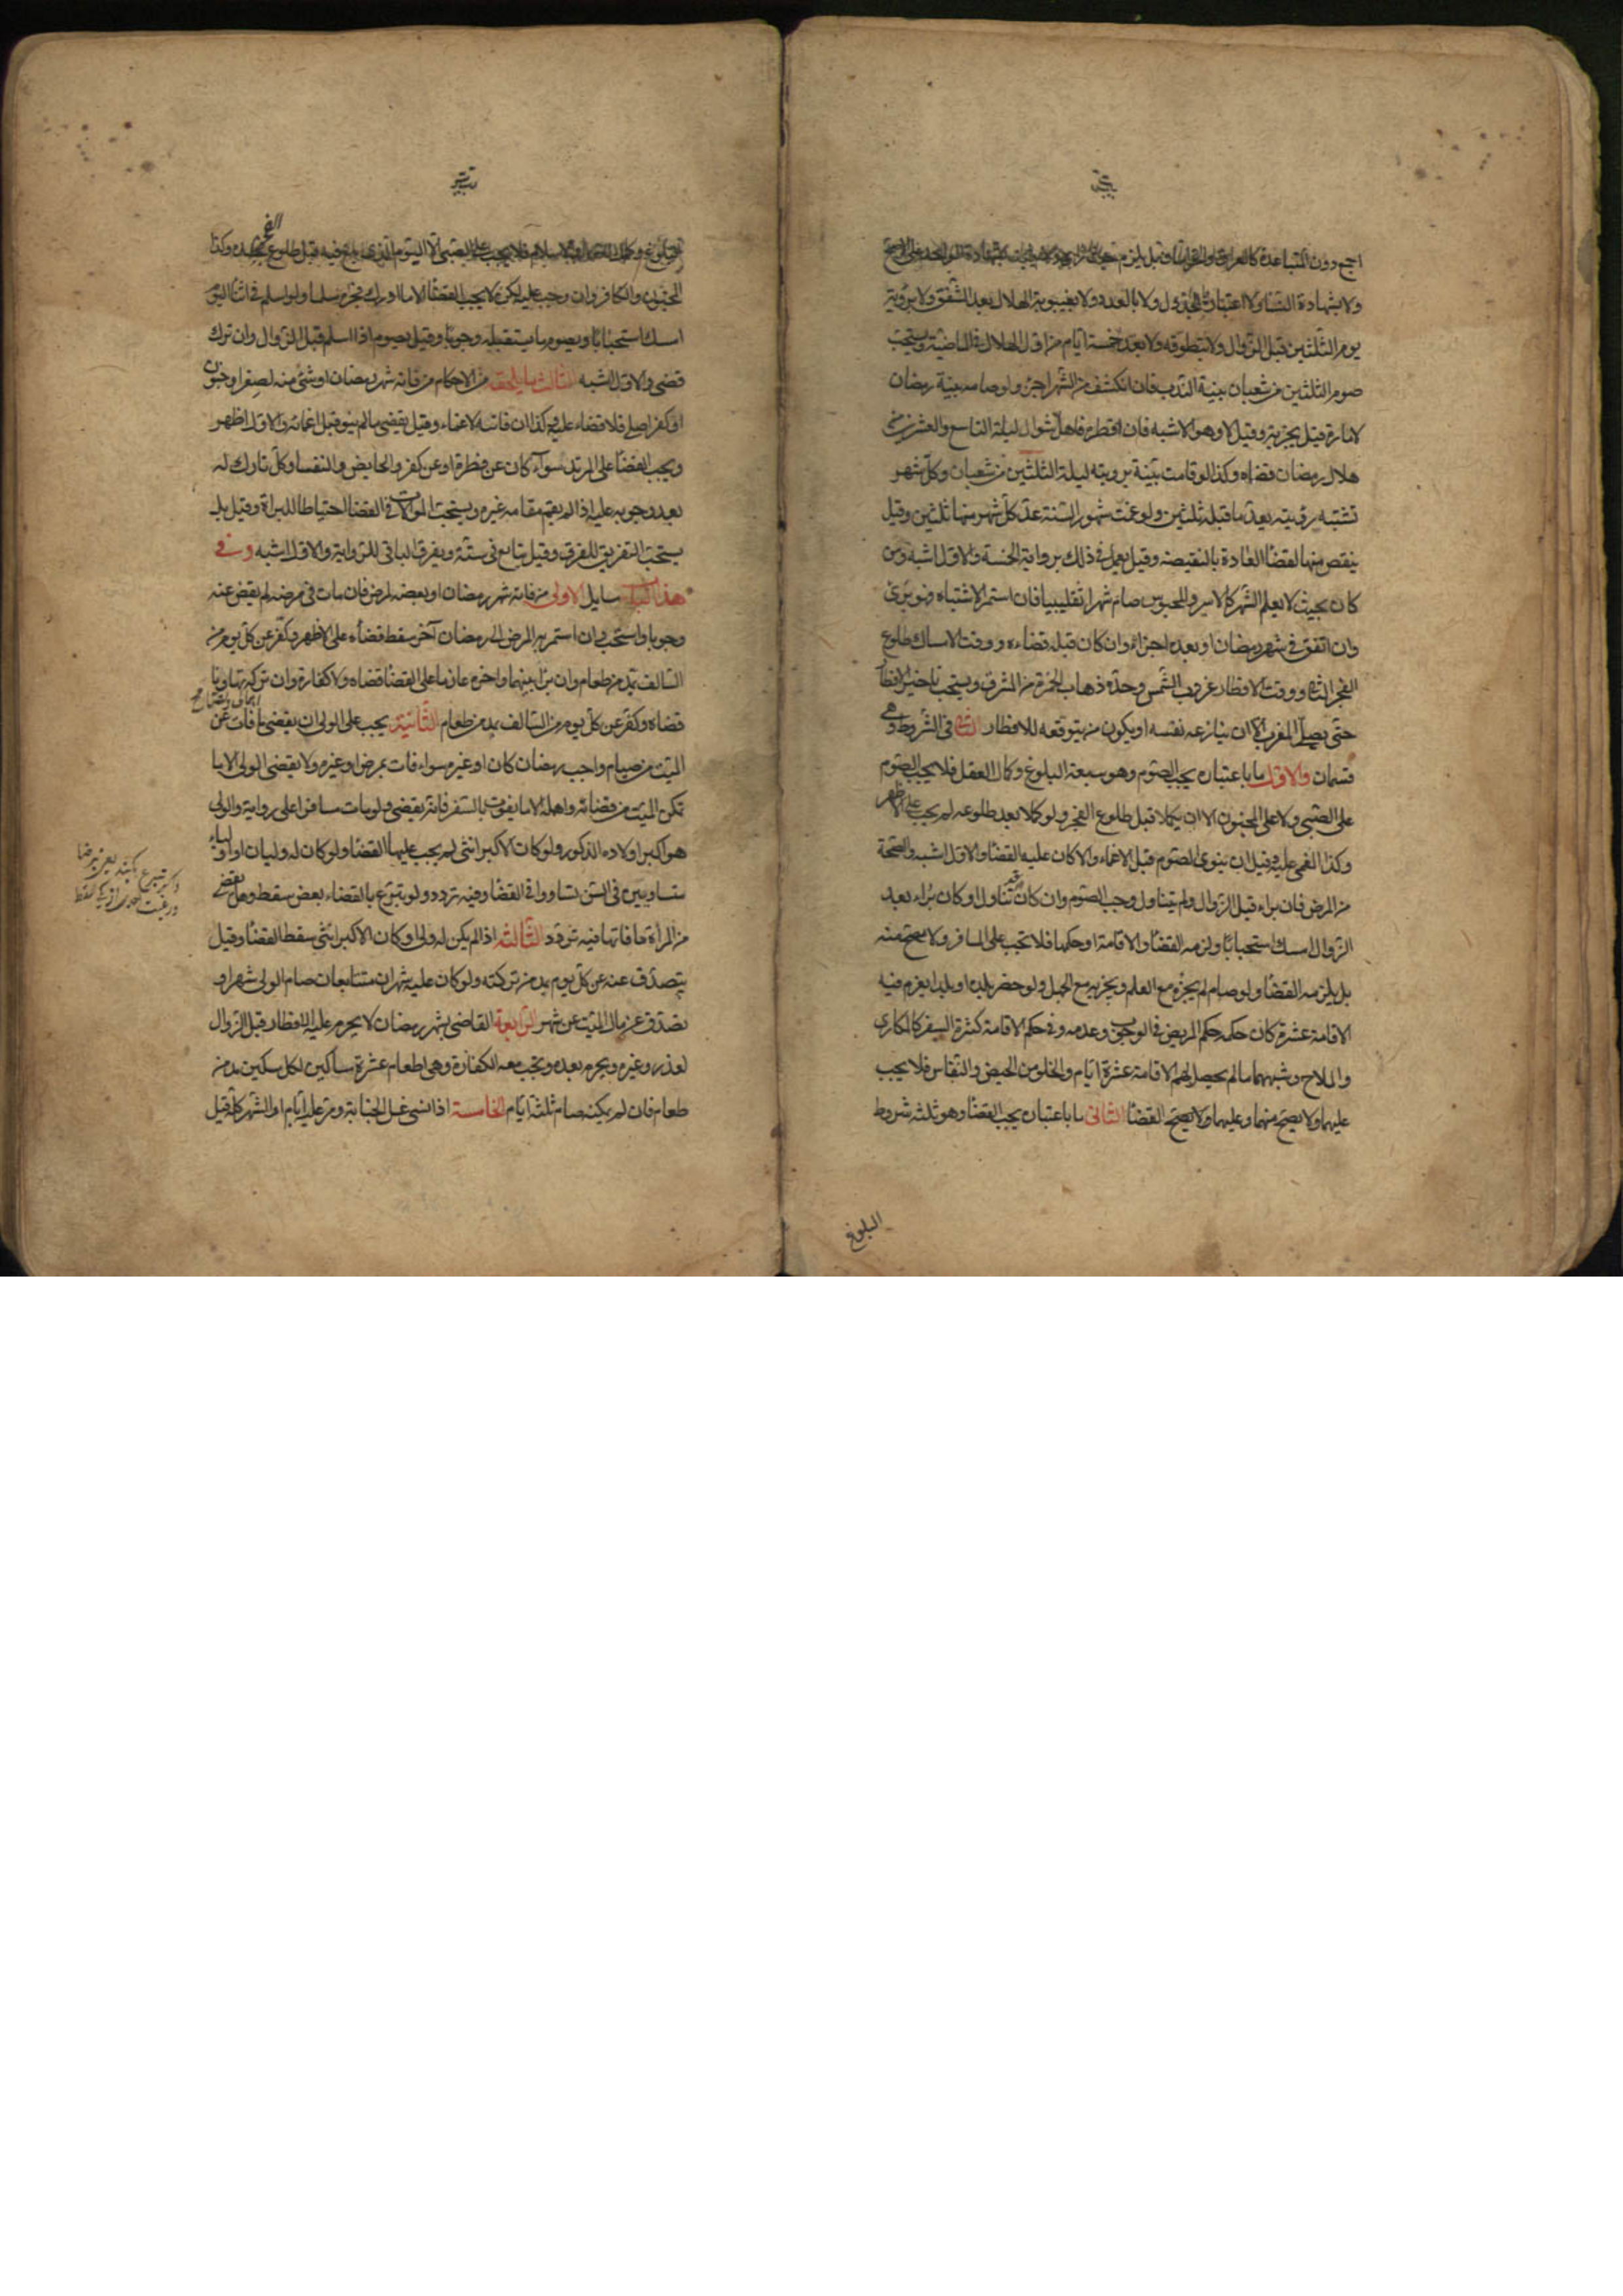 اجمع دون المتباعدة كالعراق وخراسان وقيل يلزم
ولا بشهادة النساء ولا اعتبار بالجدول ولا بالعدد ولا بغيبوبة الهلال بعد الشفق ولا برؤيته
يوم الثلثين قبل الزوال ولا بتطوقه ولا بعد خمسة ايام من اول الهلال في الماضية ويستحب
صوم الثلثين من شعبان بنية الندب فان انكشف من الشهر اجزء ولو صامه بنية رمضان
لامارة قيل يجزيه وقيل لا وهو الاشبه فان افطر فاهل شوال ليلة التاسع والعشرين من
هلال رمضان قضاه وكذا لو قامت بينة برويته ليلة الثلثين من شعبان وكل شهر
تشتبه رؤيته يعد ما قبله ثلثين ولو غمت شهور السنة عد كل شهر منها ثلثين وقيل
ينقص منها لقضاء العادة بالنقيصة وقيل يعمل في ذلك برواية الخمسة والاول اشبه ومن
كان بحيث لا يعلم الشهر كالاسير والمحبوس صام شهرا تغليبا فان استمر الاشتباه فهو برئ
وان اتفق في شهر رمضان او بعده اجزاه وان كان قبله قضاءه ووقت الامساك طلوع
الفجر الثاني ووقت الافطار غروب الشمس وحده ذهاب الحمرة من المشرق ويستحب تاخير الافطار
حتى يصلى المغرب الا ان ينازعه نفسه او يكون من يتوقعه للافطار الثاني في الشروط وهي
قسمان والاول ما باعتباره يجب الصوم وهو سبعة البلوغ وكمال العقل فلا يجب الصوم
على الصبي ولا على المجنون الا ان يكملا قبل طلوع الفجر ولو كملا بعد طلوعه لم يجب على الاظهر
وكذا المغمى عليه وقيل ان ينوى الصوم قبل الاغماء والا كان عليه القضا والاول اشبه والصحة
من المرض فان براء قبل الزوال ولم يتناول وجب الصوم وان كان قد تناول او كان براء بعد
الزوال امسك استحبابا ولزمه القضا والاقامة او حكمها فلا تجب على المسافر ولا يصح منه
بل يلزمه القضا ولو صام لم يجزه مع العلم ويجزيه مع الجهل ولو حضر بلده او بلدا يعزم فيه
الاقامة عشرة كان حكمه حكم المريض في الوجوب وعدمه وفي حكم الاقامة كثرة السفر كالمكارى
والملاح وشبههما ما لم يحصل لهم الاقامة عشرة ايام والخلو من الحيض والنفاس فلا يجب
عليهما ولا يصح منهما وعليهما القضا الثاني ما باعتباره يجب القضا وهو ثلثه شروط
البلوغ
البلوغ وكمال العقل والاسلام فلا يجب على الصبي الا اليوم الذي بلغ فيه قبل طلوع الفجر وكذا
المجنون والكافر وان وجب عليه لكن لا يجب القضا الا ما ادرك فجره مسلما ولو اسلم في اثنا اليوم
امسك استحبابا ويصوم ما يستقبله وجوبا وقيل يصوم اذا اسلم قبل الزوال وان ترك
قضى والاول اشبه الثالث ما يلحقه من الاحكام من فاته شهر رمضان او شئ منه لصغر او جنون
او كفر اصلي فلا قضاء عليه وكذا ان فاته لاغماء وقيل يقضى ما لم ينو قبل اغمائه والاول اظهر
ويجب القضا على المرتد سوآء كان عن فطرة او عن كفر والحايض والنفسا وكل تارك له
بعد وجوبه عليه اذا لم يقم مقامه غيره ويستحب الموالات في القضا احتياطا للبراة وقيل بل
يستحب التفريق للفرق وقيل يتابع في ستة ويفرق الباقي للرواية والاول اشبه وفي
هذا الباب مسايل الاولى من فاته شهر رمضان او بعضه لمرض فان مات في مرضه لم يقض عنه
وجوبا واستحب وان استمر به المرض الى رمضان آخر سقط قضاءه على الاظهر وكفر عن كل يوم من
السالف بمد من طعام وان برا بينهما واخره عازما على القضا قضاه ولا كفارة وان تركه تهاونا
قضاه وكفر عن كل يوم من السالف بمد من طعام الثانية يجب على الولى ان يقضى ما فات عن
الميت من صيام واجب رمضان كان او غيره سواء فات بمرض او غيره ولا يقضى الولى الا ما
تمكن الميت من قضائه واهمله الا ما يفوت بالسفر فانه يقضى ولو مات مسافرا على رواية والولى
هو اكبر اولاده الذكور ولو كان الاكبر انثى لم يجب عليها القضا ولو كان له وليان او اولياء
متساويين في السن تساووا في القضا وفيه تردد ولو تبرع بالقضاء بعض سقط وهل يقضى
من المراة ما فاتها فيه تردد الثالثه اذا لم يكن له ولى او كان الاكبر انثى سقط القضا وقيل
يتصدق عنه عن كل يوم بمد من تركته ولو كان عليه شهران متتابعان صام الولى شهرا و
تصدق عن مال الميت عن شهر الرابعة القاضى بشهر رمضان لا يحرم عليه الافطار قبل الزوال
لعذر وغيره ويحرم بعده وتجب معه الكفارة وهى اطعام عشرة مساكين لكل مسكين مد من
طعام فان لم يمكنه صام ثلثة ايام الخامسة اذا نسى غسل الجنابة ومر عليه ايام او الشهر كله قيل